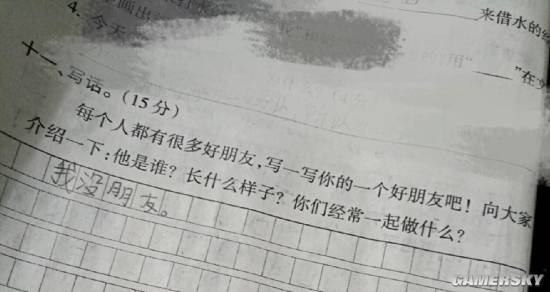 4. 今天
来借水的经
用"____"在文
十一、写话。(15分)
每个人都有很多好朋友,写一写你的一个好朋友吧!向大家
介绍一下:他是谁?长什么样子?你们经常一起做什么?
我没朋友。
GAMERSKY